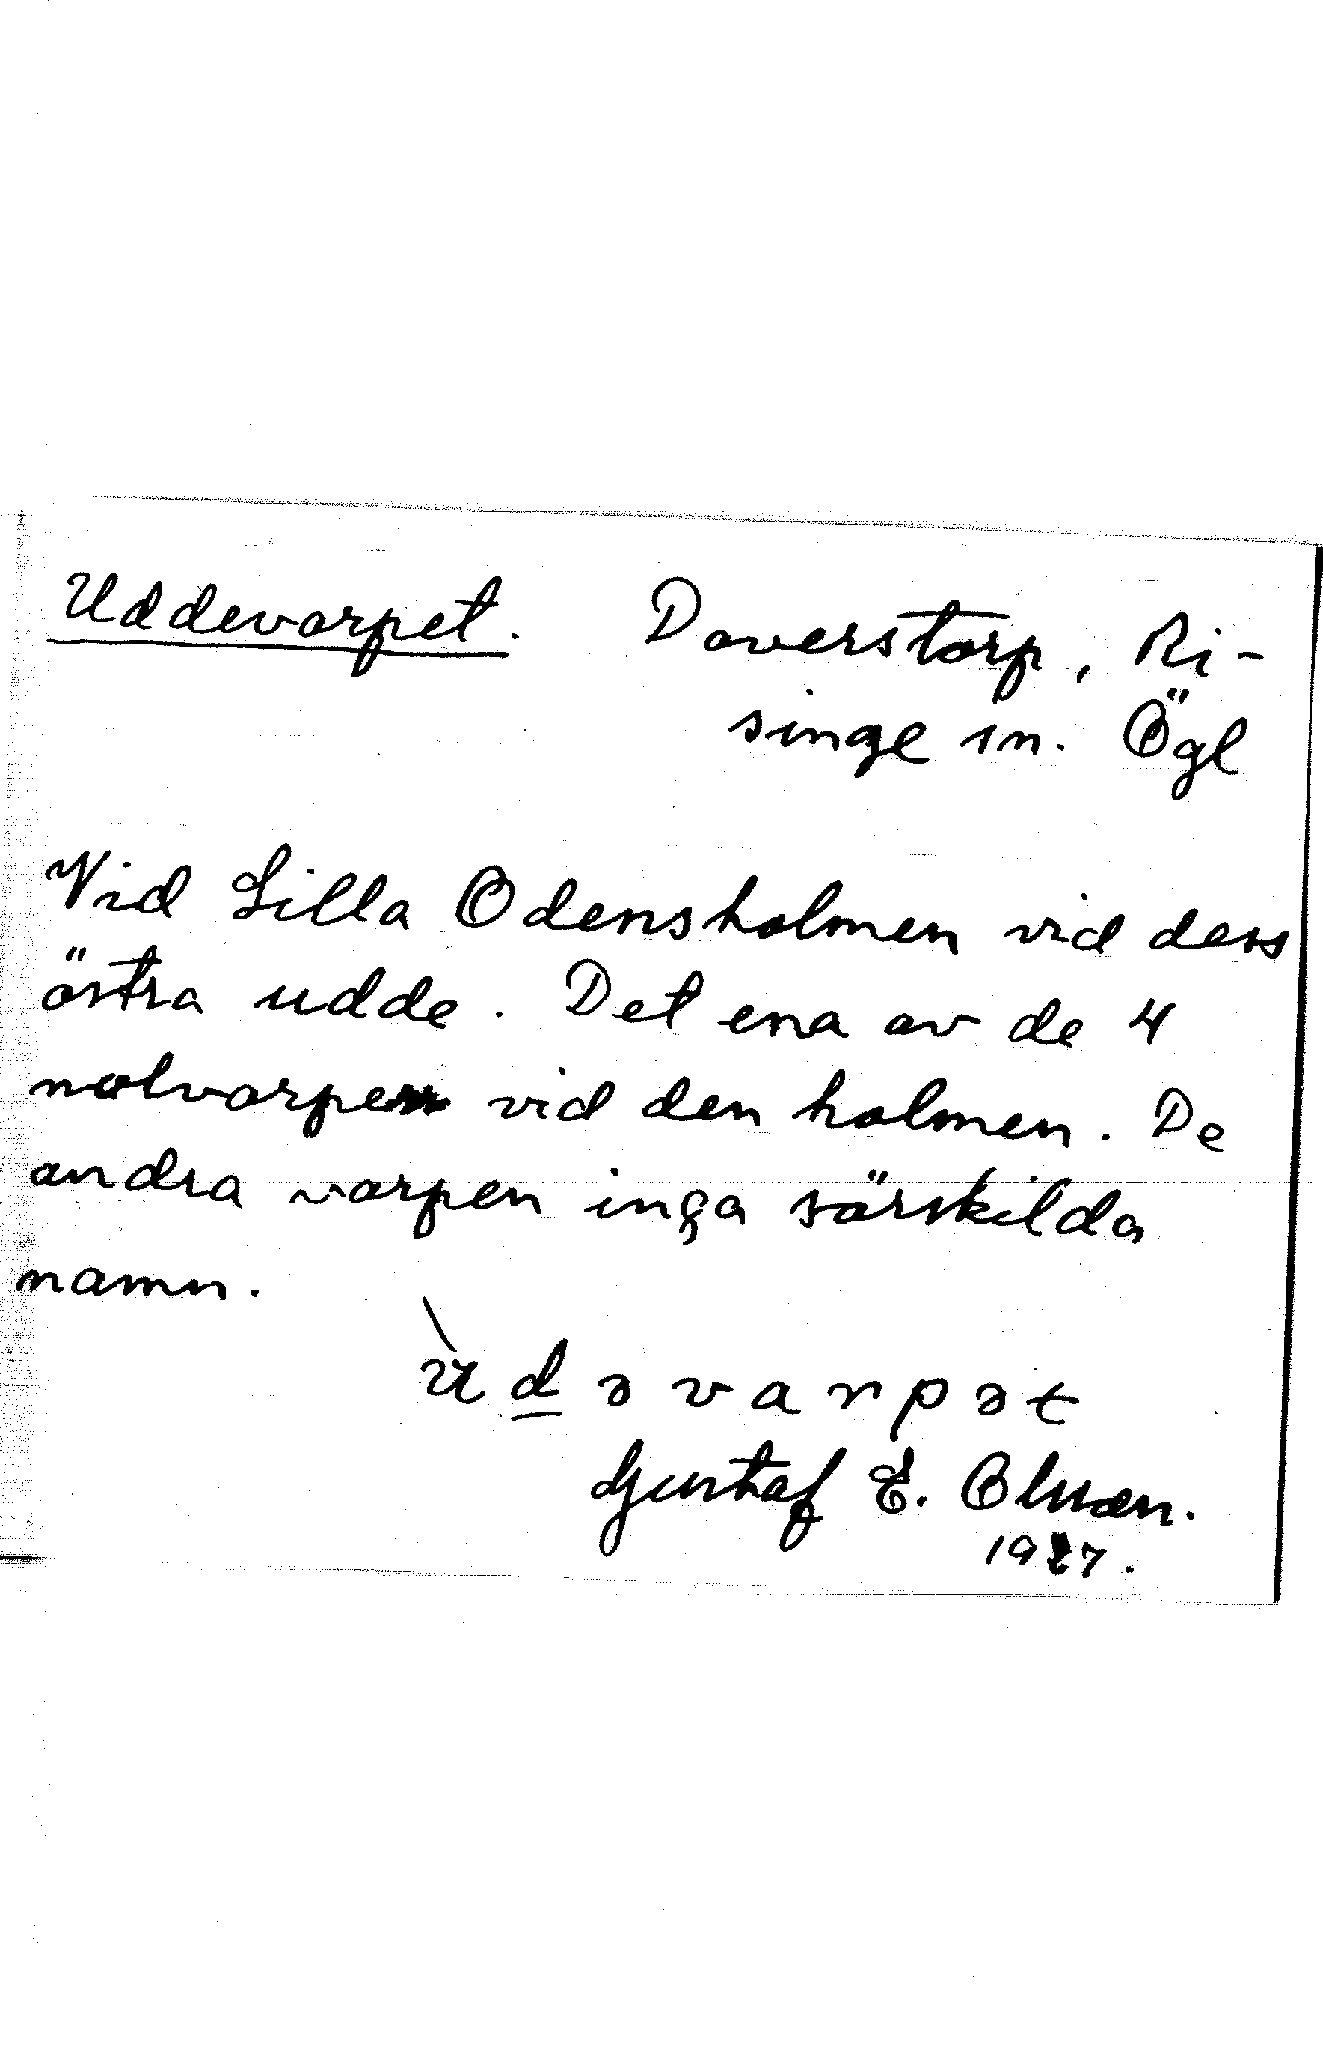 Uddevarpet. Doverstorp, Ri-
singe sn. Ögl
Vid Lilla Odensholmen vid dess
östra udde. Det ena av de 4
notvarpen vid den holmen. De
andra varpen inga särskilda
namn.
ùdəvarpət
Gustaf E. Olsson.
1927.